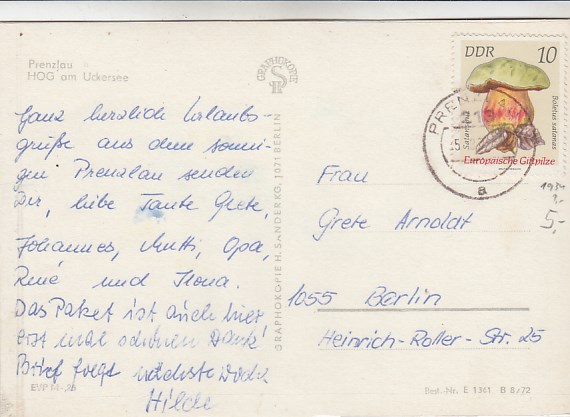 Prenzlau
HOG am Uckersee
Ganz herzlich Urlaubs-
grüße aus dem sonni-
gen Prenzlau senden
Dir, liebe Tante Grete,
Johannes, Mutti, Opa,
René und Ilona.
Das Paket ist auch hier
erst mal schönen Dank!
Brief folgt nächste Woche
Hilde
EVP M -,25
GRAPHOKOPIE
GRAPHOKOPIE H. SANDER KG, 1071 BERLIN
DDR 10
Boletus satanas
Satanspilz
Europäische Giftpilze
a
5,-
Frau
Grete Arnoldt
1055 Berlin
Heinrich-Roller-Str. 25
Best.-Nr. E 1361 B 8/72